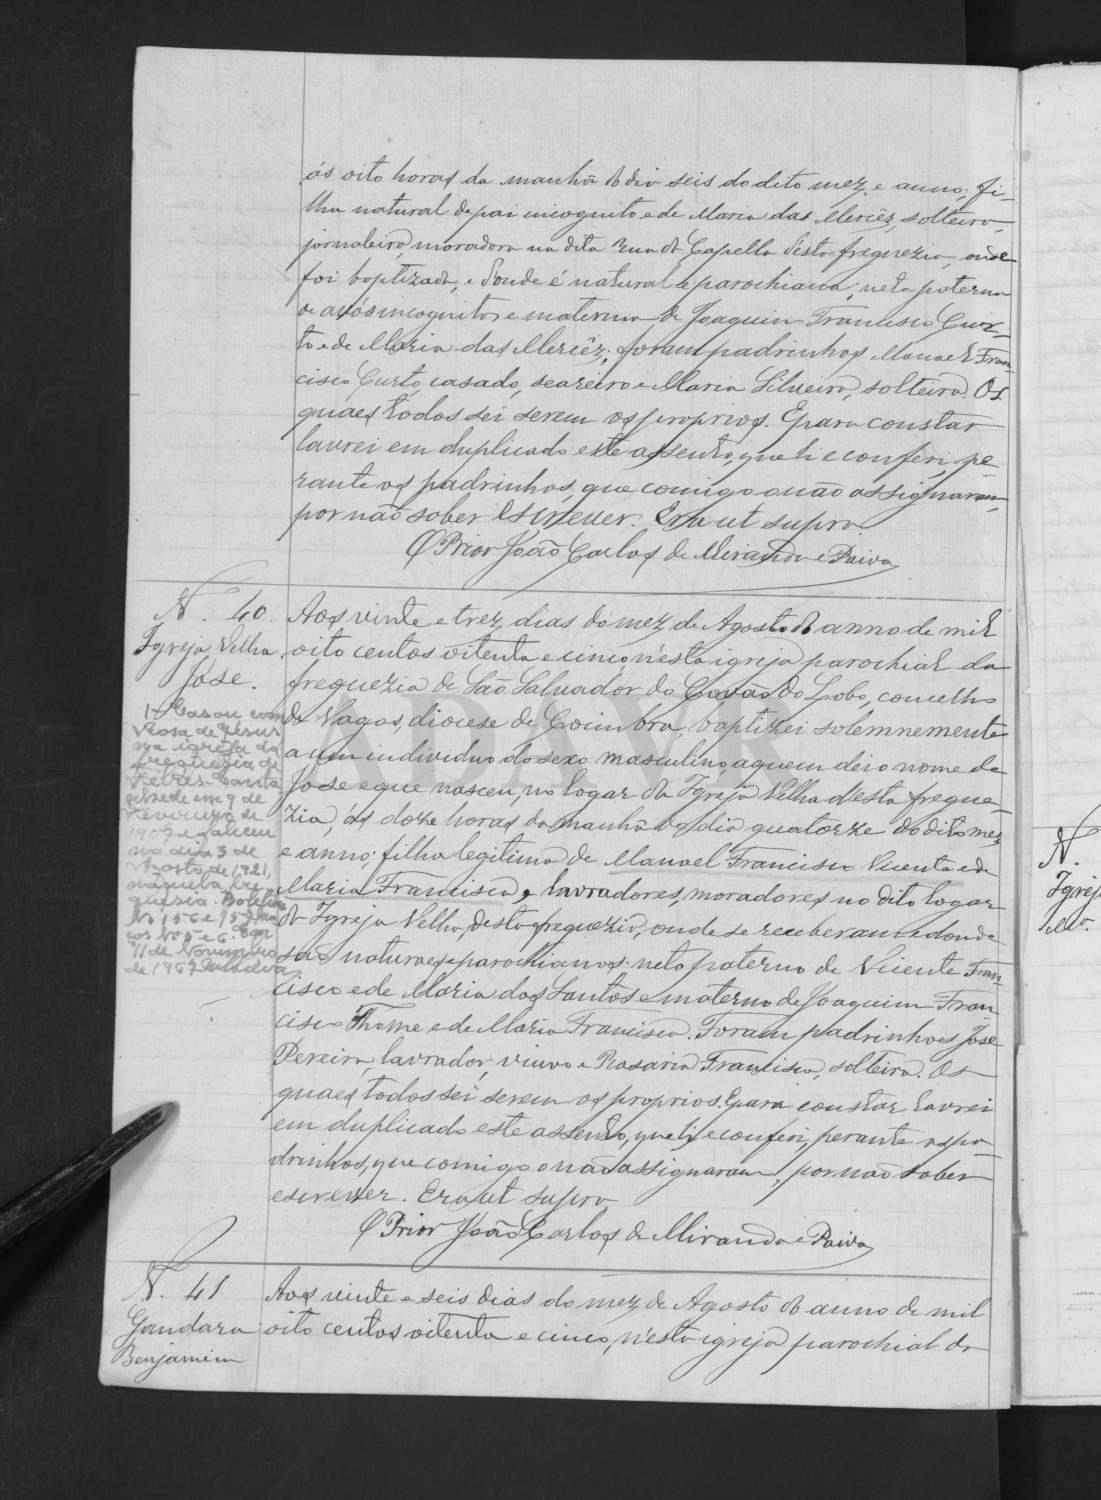 ás oito horas da manhã do dia seis do dito mez e anno, fi-
lha natural de pai incognito e de Maria das Mercêz, solteira,
jornaleira, moradora na dita rua da Capella d'esta freguezia, onde
foi baptizada, e d'onde é natural e parochiana, neta paterna
de avós incognitos e materna de Joaquim Francisco Cur-
to e de Maria das Mercêz; foram padrinhos Manoel Fran-
cisco Curto, casado, seareiro e Maria Silveira, solteira. Os
quaes todos sei serem os proprios. E para constar
lavrei em duplicado este assento, que li e conferi, pe-
rante os padrinhos, que comigo o não assignaram,
por não saber escrever. Era ut supra
O Prior João Carlos de Miranda e Paiva
N. 40
Igreja Velha
José.
Casou com
Rosa de Jesus
na igreja da
freguezia de
Febres-Canta
nhede em 9 de
Fevereiro de
1907 e faleceu
no dia 3 de
Agosto de 1921,
naquela fre
guesia. Boletins
Nos 156 e 157
Nos 5 e 6. Em
11 de Novembro
de 1967
Aos vinte e trez dias do mez de Agosto do anno de mil
oito centos oitenta e cinco, n'esta igreja parochial da
freguezia de São Salvador do Covão do Lobo, concelho
de Vagos, diocese de Coimbra, baptizei solemnemente
a um individuo do sexo masculino, a quem dei o nome de
José e que nasceu, no logar da Igreja Velha d'esta fregue-
zia, ás doze horas da manhã do dia quatorze do dito mez
e anno: filho legitimo de Manoel Francisco Vicente e de
Maria Francisca, lavradores, moradores no dito logar
da Igreja Velha, desta freguezia, onde se receberam e d'onde
são naturaes e parochianos: neto paterno de Vicente Fran-
cisco e de Maria dos Santos e materno de Joaquim Fran
cisco Thomé e de Maria Francisca. Foram padrinhos José
Pereira, lavrador, viuvo e Rosaria Francisca, solteira. Os
quaes todos sei serem os proprios. E para constar lavrei
em duplicado este assento, que li e conferi, perante os pa
drinhos, que comigo o não assignaram, por não saber
escrever. Era ut supra
O Prior João Carlos de Miranda e Paiva
N. 41
Gandara
Benjamim
Aos vinte e seis dias do mez de Agosto do anno de mil
oito centos oitenta e cinco, n'esta igreja parochial da
N.
Igrej
ADAVR